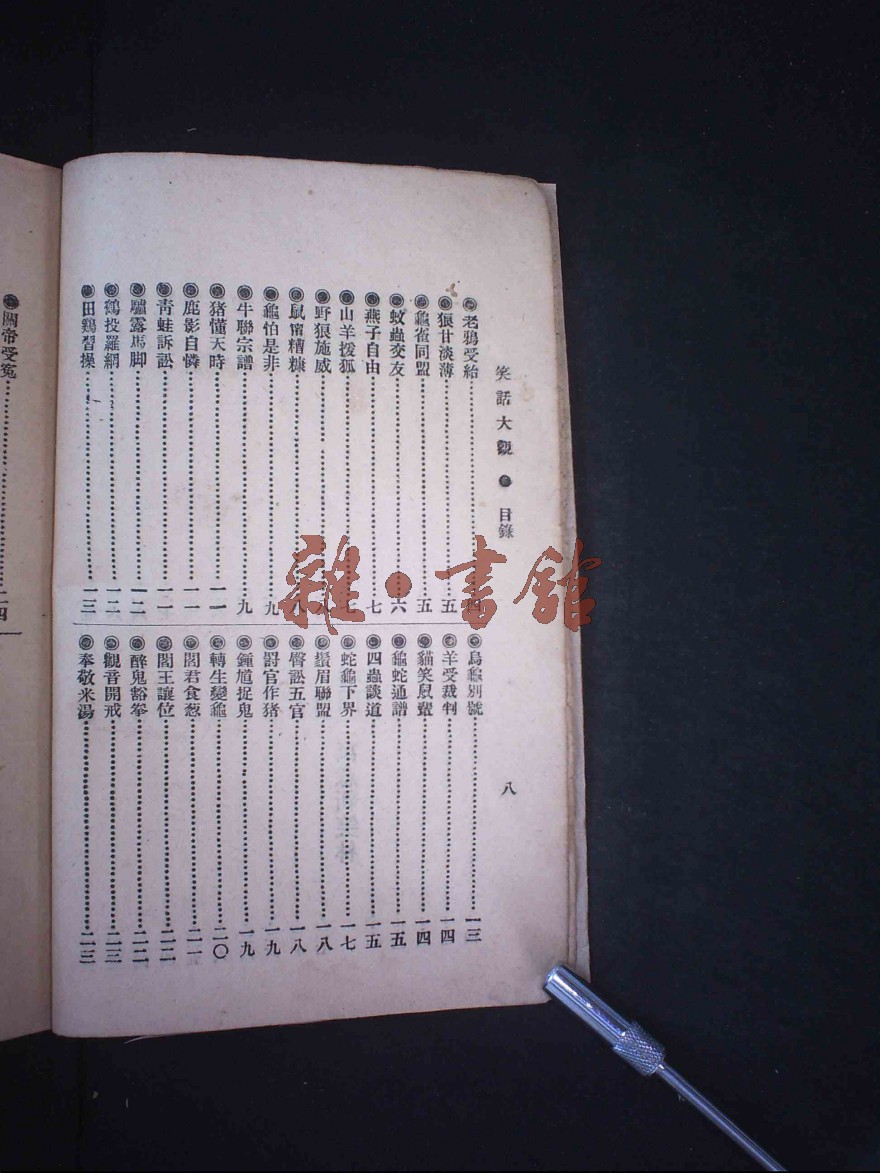 笑話大觀 ● 目錄
八
◉老鴉受紿……四
◉狼甘淡薄……五
◉龜雀同盟……五
◉蚊蟲交友……六
◉燕子自由……七
◉山羊援狐……七
◉野狼施威……八
◉鼠甯糟糠……八
◉龜怕是非……九
◉牛聯宗譜……九
◉猪懂天時……一一
◉鹿影自憐……一一
◉靑蛙訴訟……一一
◉驢露馬脚……一二
◉鷄投羅網……一二
◉田鷄習操……一三
◉烏龜別號……一三
◉羊受裁判……一四
◉貓笑鼠蠶……一四
◉龜蛇通譜……一五
◉四蟲談道……一五
◉蛇龜下界……一七
◉鬚眉聯盟……一八
◉臀訟五官……一八
◉罸官作猪……一九
◉鍾馗捉鬼……一九
◉轉生變龜……二〇
◉閻君食葱……二一
◉閻王讓位……二二
◉醉鬼豁拳……二二
◉觀音開戒……二三
◉奉敬米湯……二三
◉關帝受寃……二四
雜·書館